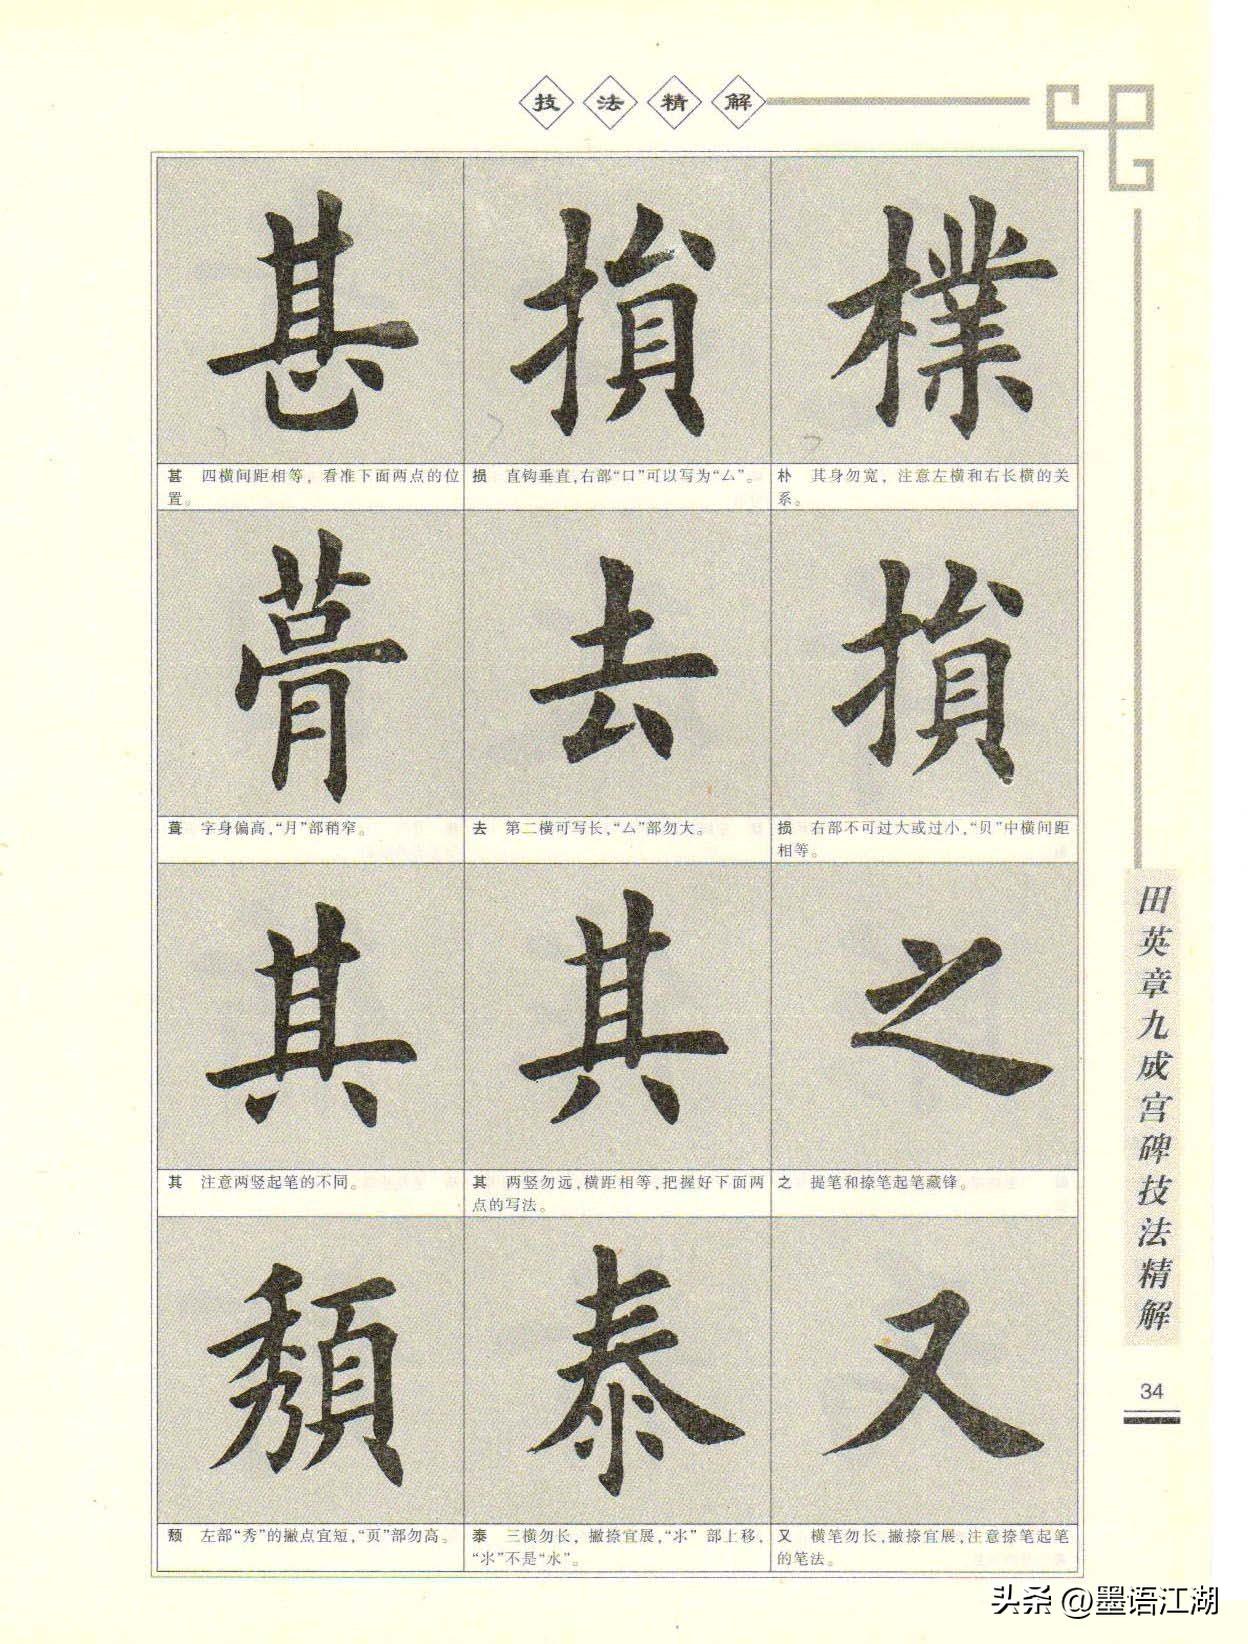 技法精解
樸
朴 其身勿宽，注意左横和右长横的关
系。
損
损 直钩垂直，右部“口”可以写为“厶”。
甚
甚 四横间距相等，看准下面两点的位
置。
損
损 右部不可过大或过小，“贝”中横间距
相等。
去
去 第二横可写长，“厶”部勿大。
葺
葺 字身偏高，“月”部稍窄。
之
之 提笔和捺笔起笔藏锋。
其
其 两竖勿远，横距相等，把握好下面两
点的写法。
其
其 注意两竖起笔的不同。
又
又 横笔勿长，撇捺宜展，注意捺笔起笔
的笔法。
泰
泰 三横勿长，撇捺宜展，“氺”部上移，
“氺”不是“水”。
頽
颓 左部“秀”的撇点宜短，“页”部勿高。
田英章九成宫碑技法精解
34
头条 @墨语江湖